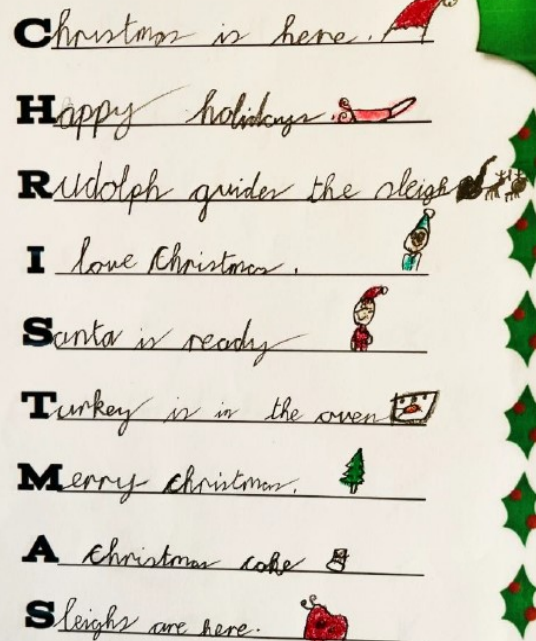 Christmas is here.
Happy holidays.
Rudolph guides the sleigh
I love Christmas.
Santa is ready
Turkey is in the oven
Merry christmas.
A christmas cake
Sleighs are here.